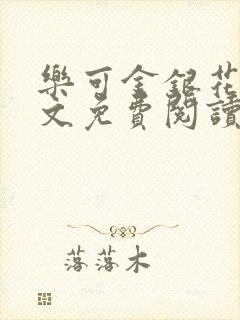 樂可金銀花
文免費閱讀
落落木